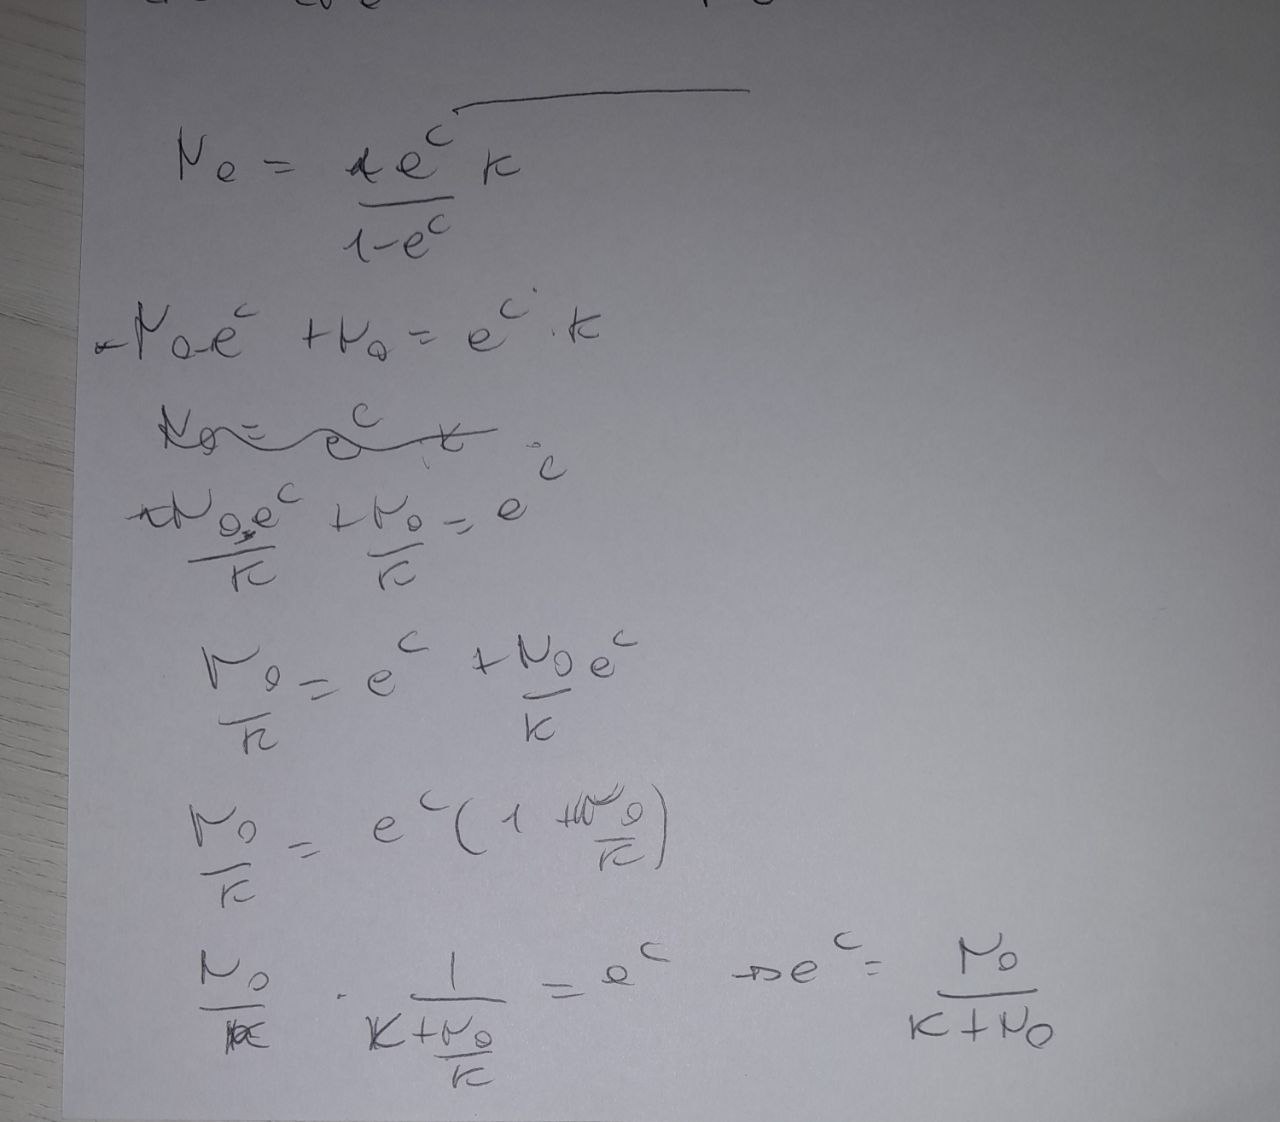 N₀ = e^c/(1-e^c) K
-N₀e^c + N₀ = e^c · K
N₀ = e^c K
-N₀·e^c/K + N₀/K = e^c
N₀/K = e^c + N₀/K e^c
N₀/K = e^c (1 + N₀/K)
N₀/K · 1/((K+N₀)/K) = e^c → e^c = N₀/(K+N₀)